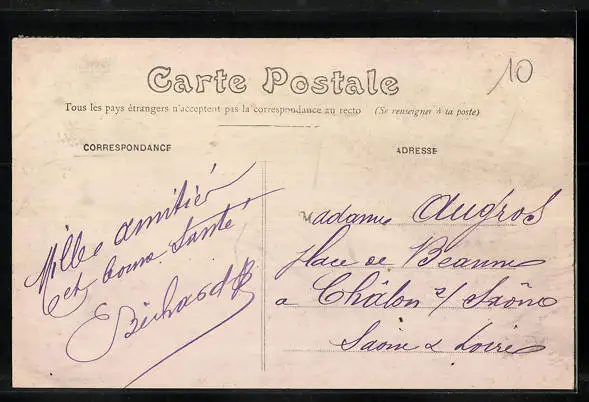 10
Carte Postale
Tous les pays étrangers n'acceptent pas la correspondance au recto (Se renseigner à la poste)
CORRESPONDANCE
ADRESSE
Mille amitiés
et bonne santé
Madame Augros
place de Beaune
a Châlon s/ Saône
Saône & Loire